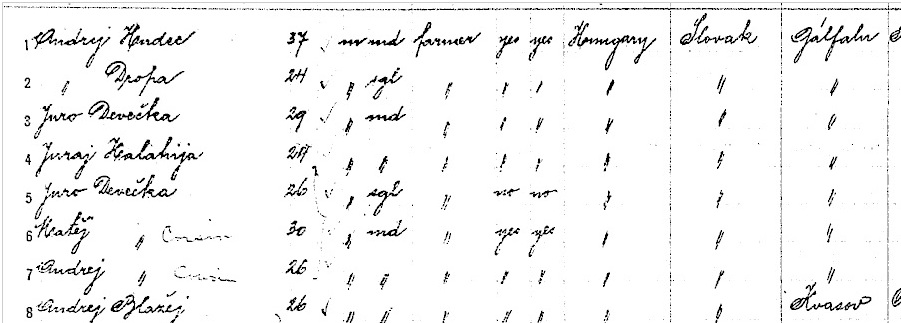 1 Andrej Hudec 37 m md farmer yes yes Hungary Slovak Gálfalu
2 " Dropa 24 " sgl " " " " " "
3 Juro Devečka 29 " md " " " " " "
4 Juraj Halahija 24 " " " " " " " "
5 Juro Devečka 26 " sgl " no no " " "
6 Matěj " Cousin 30 " md " yes yes " " "
7 Andrej " Cousin 26 " " " " " " " "
8 Andrej Blažej 26 " " " " " " " Kvasov